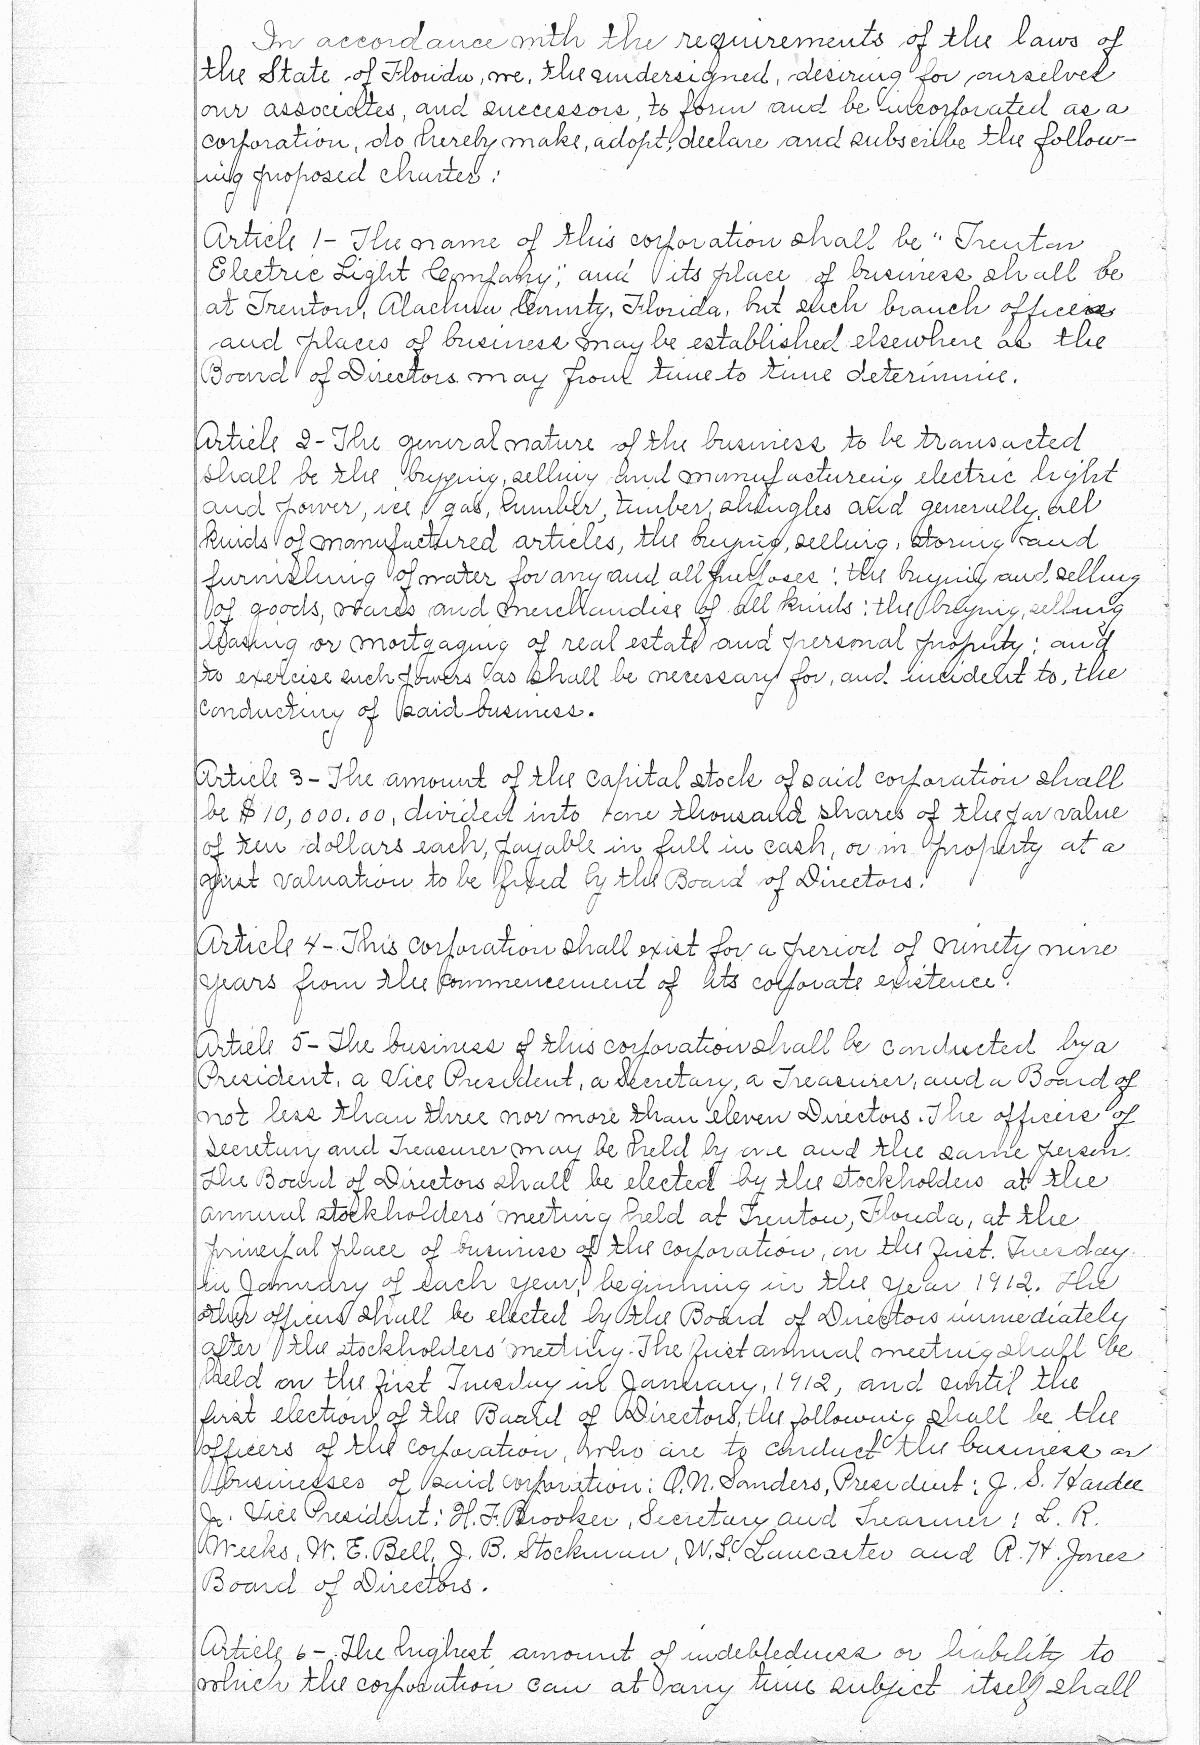 In accordance with the requirements of the laws of
the State of Florida, we, the undersigned, desiring for ourselves
our associates, and successors, to form and be incorporated as a
corporation, do hereby make, adopt, declare and subscribe the follow-
ing proposed charter:
Article 1- The name of this corporation shall be "Trenton
Electric Light Company," and its place of business shall be
at Trenton, Alachua County, Florida, but such branch offices
and places of business may be established elsewhere as the
Board of Directors may from time to time determine.
Article 2- The general nature of the business to be transacted
shall be the buying, selling and manufactureing electric light
and power, ice, gas, lumber, timber, shingles and generally, all
kinds of manufactured articles, the buying, selling, storing and
furnishing of water for any and all purposes: the buying and selling
of goods, wares and merchandise of all kinds: the buying, selling
leasing or mortgaging of real estate and personal property; and
to exercise such powers as shall be necessary for, and incident to, the
conducting of said business.
Article 3- The amount of the capital stock of said corporation shall
be $10,000.00, divided into one thousand shares of the par value
of ten dollars each, payable in full in cash, or in property at a
just valuation to be fixed by the Board of Directors.
Article 4- This corporation shall exist for a period of ninety nine
years from the commencement of its corporate existence.
Article 5- The business of this corporation shall be conducted by a
President, a Vice President, a Secretary, a Treasurer, and a Board of
not less than three nor more than eleven Directors. The officers of
Secretary and Treasurer may be held by one and the same person.
The Board of Directors shall be elected by the stockholders at the
annual stockholders' meeting held at Trenton, Florida, at the
principal place of business of the corporation, on the first Tuesday
in January of each year, beginning in the year 1912. The
other officers shall be elected by the Board of Directors immediately
after the stockholders' meeting. The first annual meeting shall be
held on the first Tuesday in January, 1912, and until the
first election of the Board of Directors, the following shall be the
officers of the corporation, who are to conduct the business or
businesses of said corporation: O.N. Sanders, President; J. S. Hardee
Jr. Vice President; H.F. Brooker, Secretary and Treasurer; L. R.
Weeks, W. E. Bell, J. B. Stockman, W.S. Lancaster and R. H. Jones
Board of Directors.
Article 6- The highest amount of indebtedness or liability to
which the corporation can at any time subject itself shall